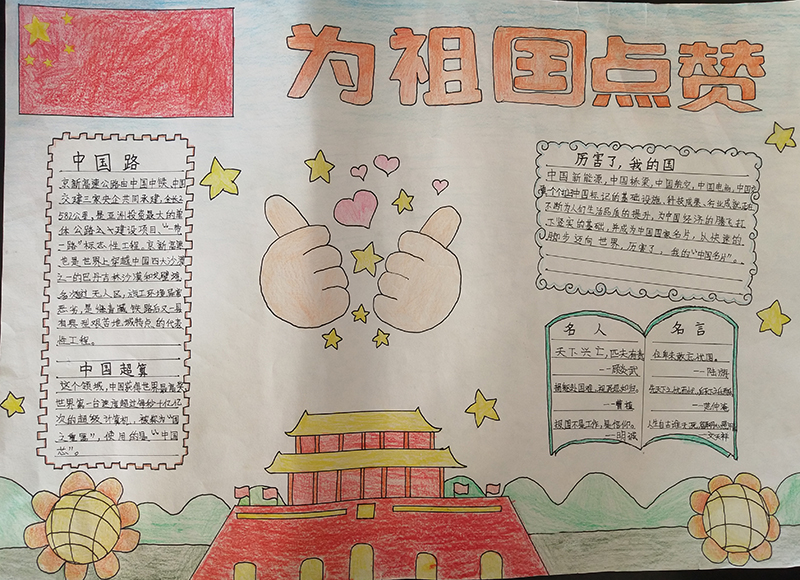 为祖国点赞
中国路
京新高速公路由中国中铁、中国
交建三家央企共同承建，全长2
582公里，是亚洲投资最大的单
体公路
建设项目，“一带
一路”标志性工程。京新高速
也是世界上穿越中国四大沙漠
之一的巴丹吉林沙漠和戈壁
无人区，施工环境异常
恶劣，是继青藏铁路后又一具
有典型艰苦地域特点的代表
性工程。
中国超算
这个领域，中国获得世界最高奖
世界第一台速度超过每秒十亿亿
次的超级计算机，被称为“国
之重器”，使用的是“中国
芯”。
厉害了，我的国
中国新能源，中国桥梁，中国航空，中国电商，中国
中国标记的基础设施、科技成果、行业成就正在
不断为人们生活品质的提升，为中国经济的腾飞打
下坚实的基础，并成为中国国家名片，以快速的
脚步迈向世界，厉害了，我的“中国名片”。
名人
天下兴亡，匹夫有责
——顾炎武
捐躯赴国难，视死忽如归。
——曹植
报国不是工作，是信仰。
——明诚
名言
位卑未敢忘忧国。
——陆游
先天下之忧而忧，后天下之乐而乐
——范仲淹
人生自古谁无死，留取丹心照汗青
——文天祥